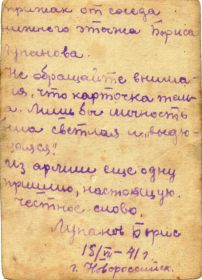 от соседа
нижнего этажа Бориса
Лупанова.
Не обращайте внима
я, что карточка
Лишь бы личность
была светлая и
из армии еще одну
пришлю, настоящую.
честное слово.
Лупанов Борис
15/VII-41 г.
г. Новороссийск.